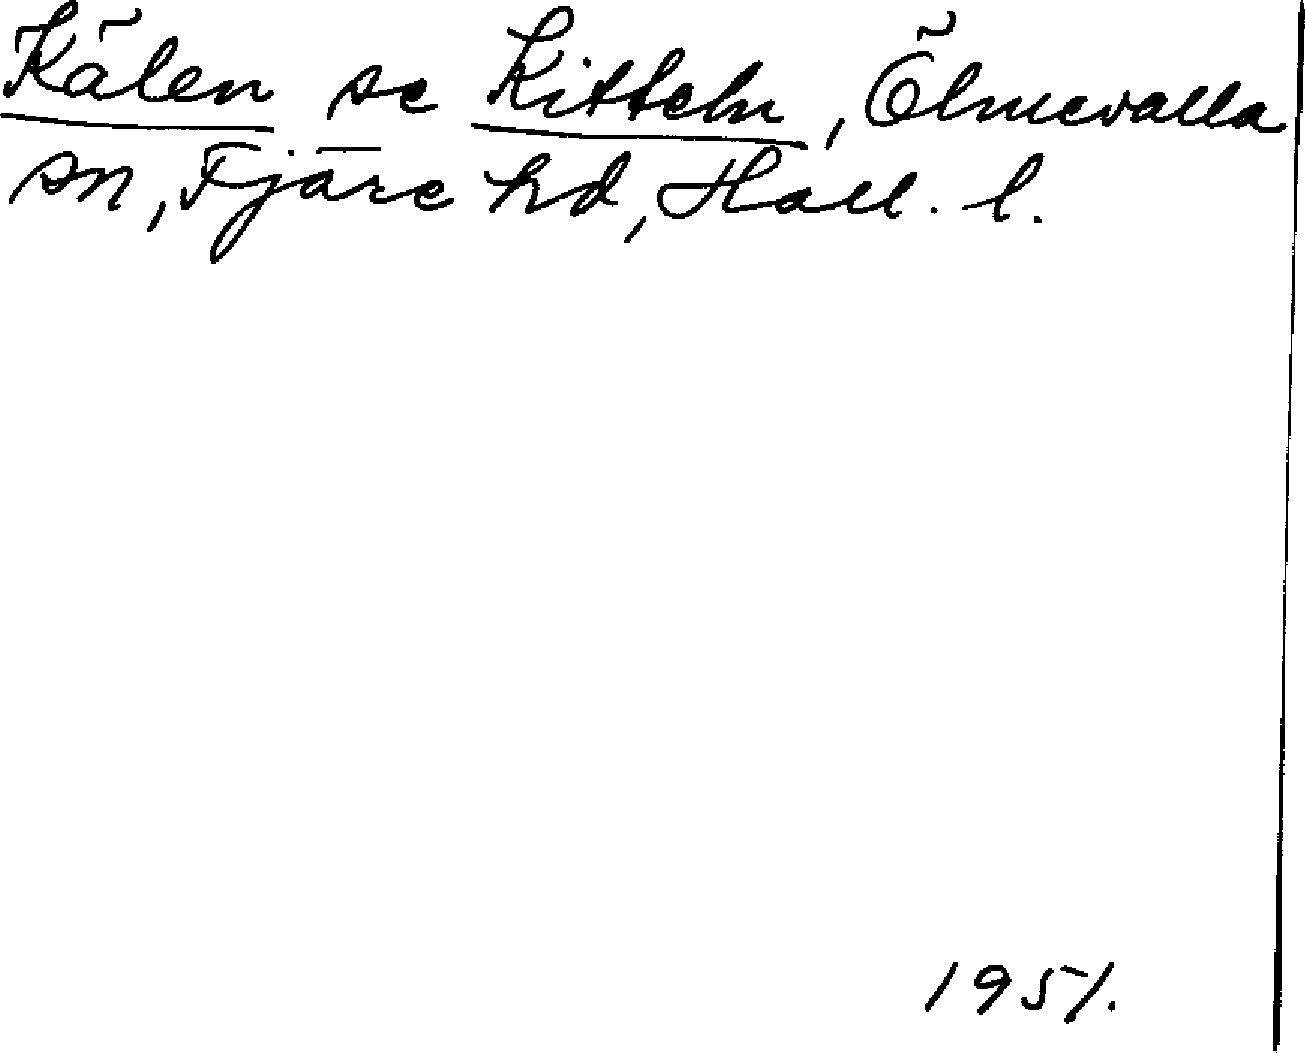 Kälen se Kitteln, Ölmevalla
sn, Fjäre hd, Hall. l.
1951.